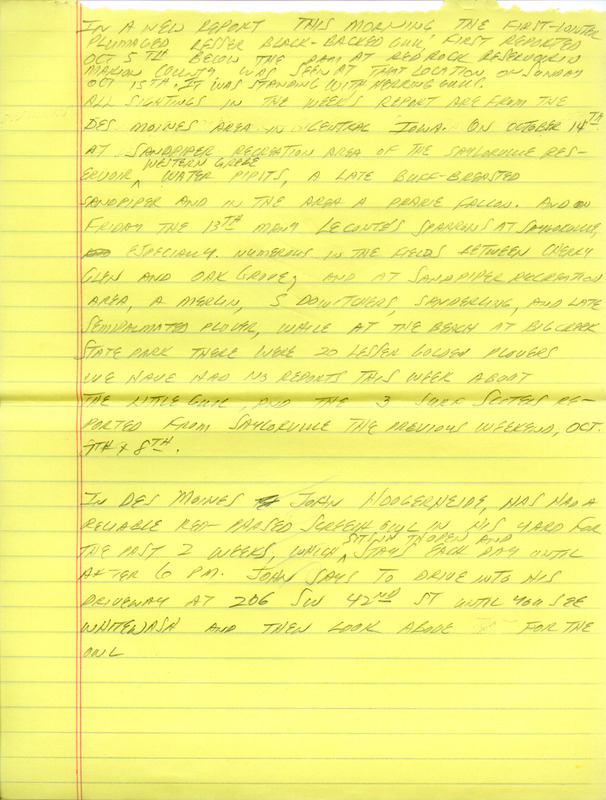 IN A NEW REPORT THIS MORNING THE FIRST-WINTER
PLUMAGED LESSER BLACK-BACKED GULL, FIRST REPORTED
OCT 5TH BELOW THE DAM AT RED ROCK RESERVOIR IN
MARION COUNTY, WAS SEEN AT THAT LOCATION ON SUNDAY
OCT 15TH. IT WAS STANDING WITH HERRING GULLS.
ALL SIGHTINGS IN THE WEEK'S REPORT ARE FROM THE
DES MOINES AREA IN CENTRAL IOWA. ON OCTOBER 14TH
AT SANDPIPER RECREATION AREA OF THE SAYLORVILLE RES-
WESTERN GREBE
ERVOIR, WATER PIPITS, A LATE BUFF-BREASTED
SANDPIPER AND IN THE AREA A PRAIRIE FALCON. AND ON
FRIDAY THE 13TH MANY LECONTE'S SPARROWS AT SAYLORVILLE,
ESPECIALLY NUMEROUS IN THE FIELDS BETWEEN CHERRY
GLEN AND OAK GROVE, AND AT SANDPIPER RECREATION
AREA, A MERLIN, 5 DOWITCHERS, SANDERLING, AND LATE
SEMIPALMATED PLOVER, WHILE AT THE BEACH AT BIG CREEK
STATE PARK THERE WERE 20 LESSER GOLDEN PLOVERS
WE HAVE HAD NO REPORTS THIS WEEK ABOUT
THE LITTLE GULL AND THE 3 SURF SCOTERS RE-
PORTED FROM SAYLORVILLE THE PREVIOUS WEEKEND, OCT.
7TH & 8TH.
IN DES MOINES JOHN HOOGERHEIDE, HAS HAD A
RELIABLE RED-PHASED SCREECH OWL IN HIS YARD FOR
SITS IN THE OPEN AND
THE PAST 2 WEEKS, WHICH STAYS EACH DAY UNTIL
AFTER 6 PM. JOHN SAYS TO DRIVE INTO HIS
DRIVEWAY AT 206 SW 42ND ST UNTIL YOU SEE
WHITEWASH AND THEN LOOK ABOVE FOR THE
OWL